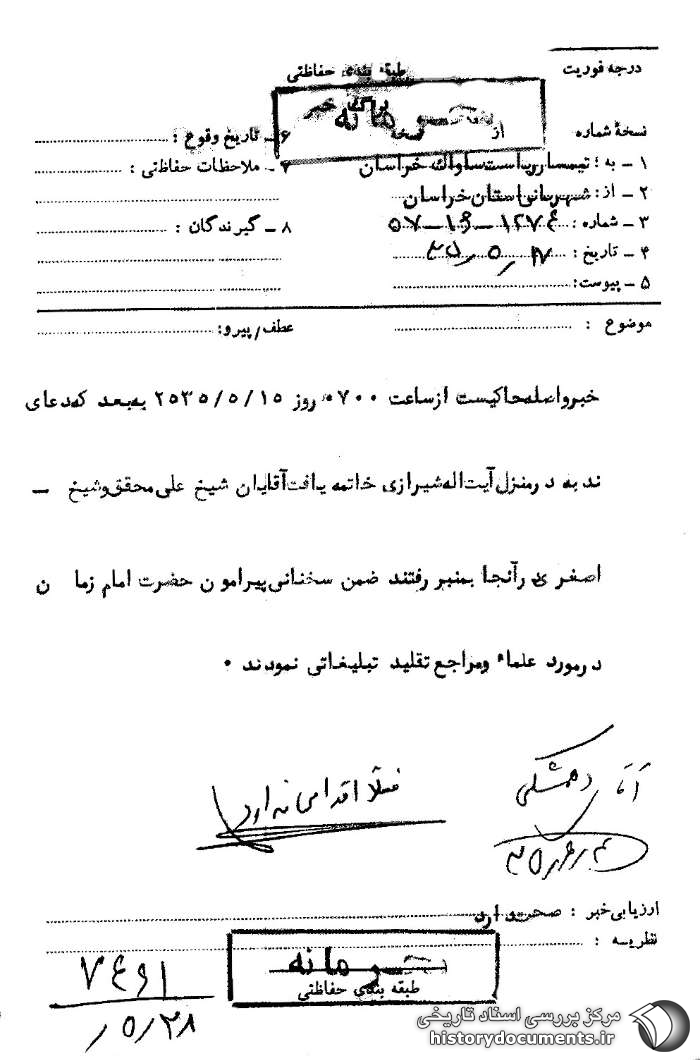 درجه فوریت
طبقه بندی حفاظتی
برگ خبر
محرمانه
نسخهٔ شماره
از
نسخه
۱ ـ به : تیمسار ریاست ساواک خراسان
۲ ـ از : شهربانی استان خراسان
۳ ـ شماره :
۴ ـ تاریخ :
۵ ـ پیوست:
۶ ـ تاریخ وقوع :
۷ ـ ملاحظات حفاظتی :
۸ ـ گیرندگان :
موضوع :
عطف/پیرو:
خبر واصله حاکیست از ساعت ۰۷۰۰ روز ۲۵۳۵/۵/۱۵ به بعد که دعای
ندبه در منزل آیت اله شیرازی خاتمه یافت آقایان شیخ علی محقق و شیخ ـ
اصغری در آنجا بمنبر رفتند ضمن سخنانی پیرامون حضرت امام زمان
در مورد علماء و مراجع تقلید تبلیغاتی نمودند ۰
فعلاً اقدامی ندارد
آقای
ارزیابی خبر : صحت دارد
نظریه :
محرمانه
طبقه بندی حفاظتی
۵/۲۸
مرکز بررسی اسناد تاریخی
historydocuments.ir